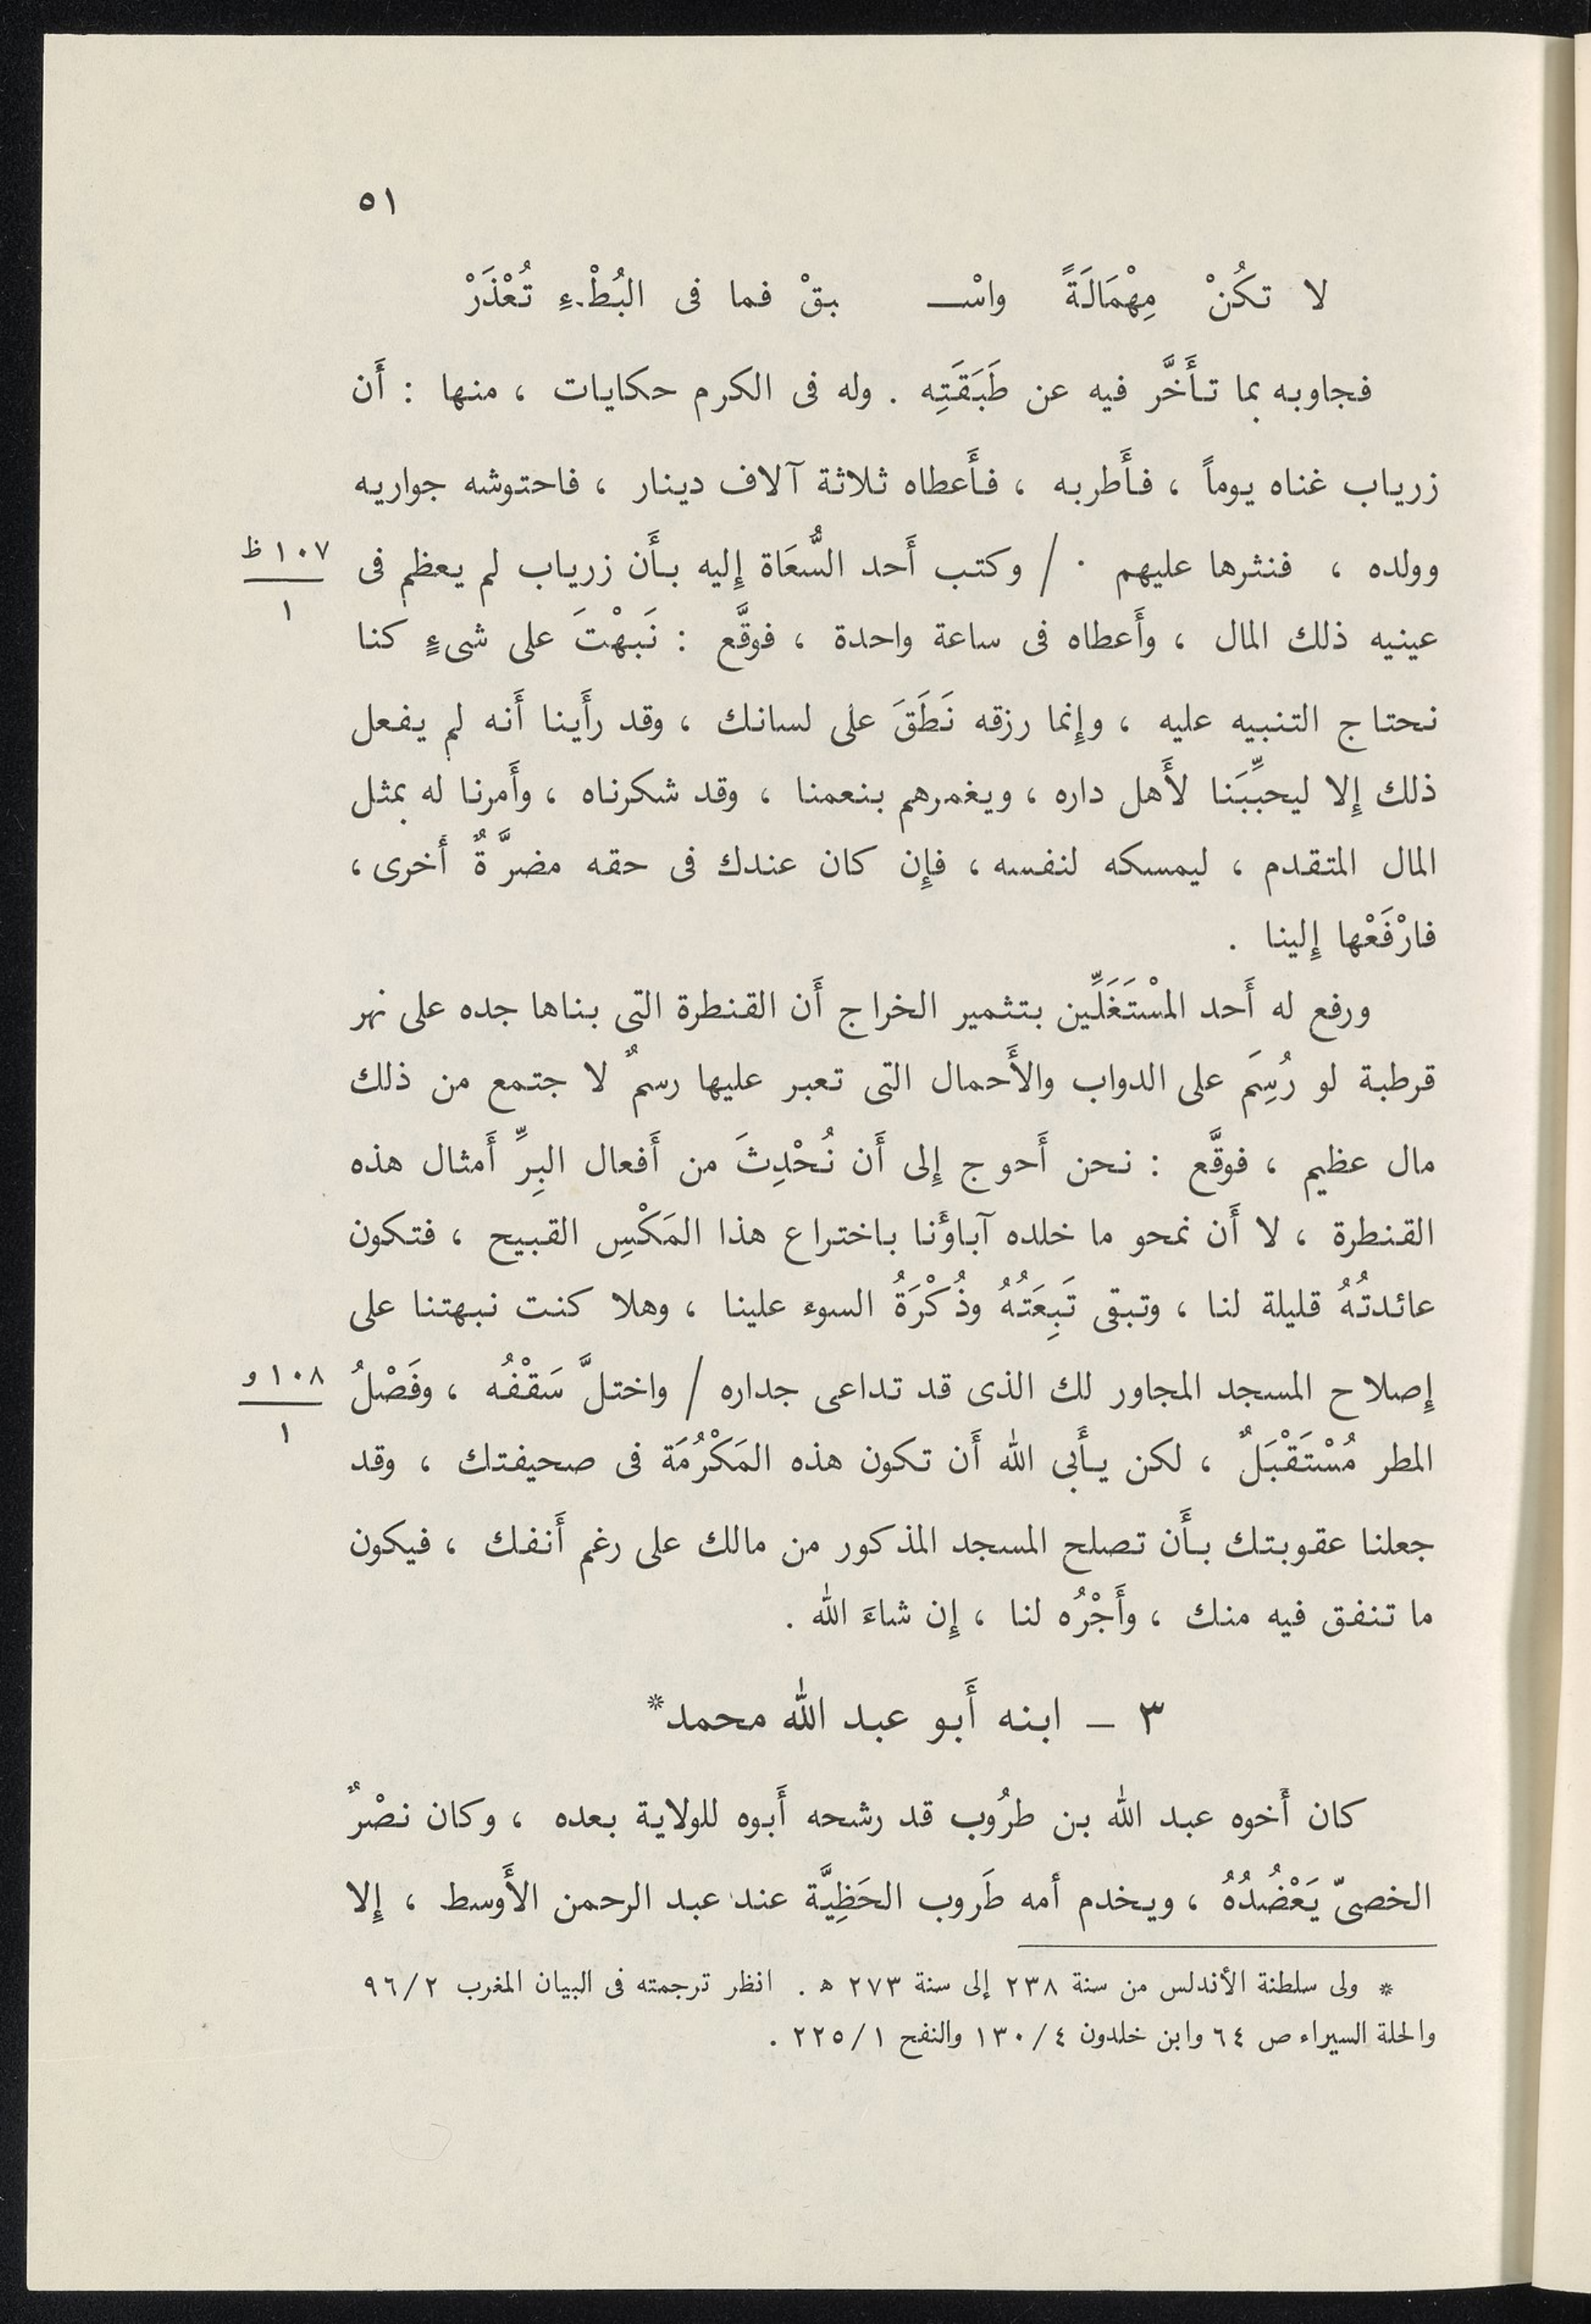 ٥١
لا تكُنْ مِهْمَالَةً واسْـــ بقْ فما فى البُطْءِ تُعْذَرْ
فجاوبه بما تأَخَّر فيه عن طَبَقَتِه . وله فى الكرم حكايات ، منها : أَن
زرياب غناه يوماً ، فأَطربه ، فأَعطاه ثلاثة آلاف دينار ، فاحتوشه جواريه
وولده ، فنثرها عليهم . / وكتب أَحد السُّعَاة إِليه بأَن زرياب لم يعظم فى
١٠٧ ظ
١
عينيه ذلك المال ، وأَعطاه فى ساعة واحدة ، فوقَّع : نَبهْتَ على شىءٍ كنا
نحتاج التنبيه عليه ، وإِنما رزقه نَطَقَ على لسانك ، وقد رأَينا أَنه لم يفعل
ذلك إِلا ليحبِّبَنا لأَهل داره ، ويغمرهم بنعمنا ، وقد شكرناه ، وأَمرنا له بمثل
المال المتقدم ، ليمسكه لنفسه ، فإِن كان عندك فى حقه مضرَّةٌ أَخرى ،
فارْفَعْها إِلينا .
ورفع له أَحد المسْتَغَلِّين بتثمير الخراج أَن القنطرة التى بناها جده على نهر
قرطبة لو رُسِمَ على الدواب والأَحمال التى تعبر عليها رسمٌ لا جتمع من ذلك
مال عظيم ، فوقَّع : نحن أَحوج إِلى أَن نُحْدِثَ من أَفعال البِرِّ أَمثال هذه
القنطرة ، لا أَن نمحو ما خلده آباؤَنا باختراع هذا المَكْسِ القبيح ، فتكون
عائدتُهُ قليلة لنا ، وتبقى تَبِعَتُهُ وذُكْرَةُ السوء علينا ، وهلا كنت نبهتنا على
إِصلاح المسجد المجاور لك الذى قد تداعى جداره / واختلَّ سَقْفُه ، وفَصْلُ
١٠٨ و
١
المطر مُسْتَقْبَلٌ ، لكن يأَبى الله أَن تكون هذه المَكْرُمَة فى صحيفتك ، وقد
جعلنا عقوبتك بأَن تصلح المسجد المذكور من مالك على رغم أَنفك ، فيكون
ما تنفق فيه منك ، وأَجْرُه لنا ، إِن شاءَ الله .
٣ – ابنه أَبو عبد الله محمد*
كان أَخوه عبد الله بن طرُوب قد رشحه أَبوه للولاية بعده ، وكان نصْرٌ
الخصىّ يَعْضُدُهُ ، ويخدم أمه طَروب الحَظِيَّة عند عبد الرحمن الأَوسط ، إِلا
* ولى سلطنة الأندلس من سنة ٢٣٨ إلى سنة ٢٧٣ ه . انظر ترجمته فى البيان المغرب ٩٦/٢
والحلة السيراء ص ٦٤ وابن خلدون ١٣٠/٤ والنفح ٢٢٥/١ .